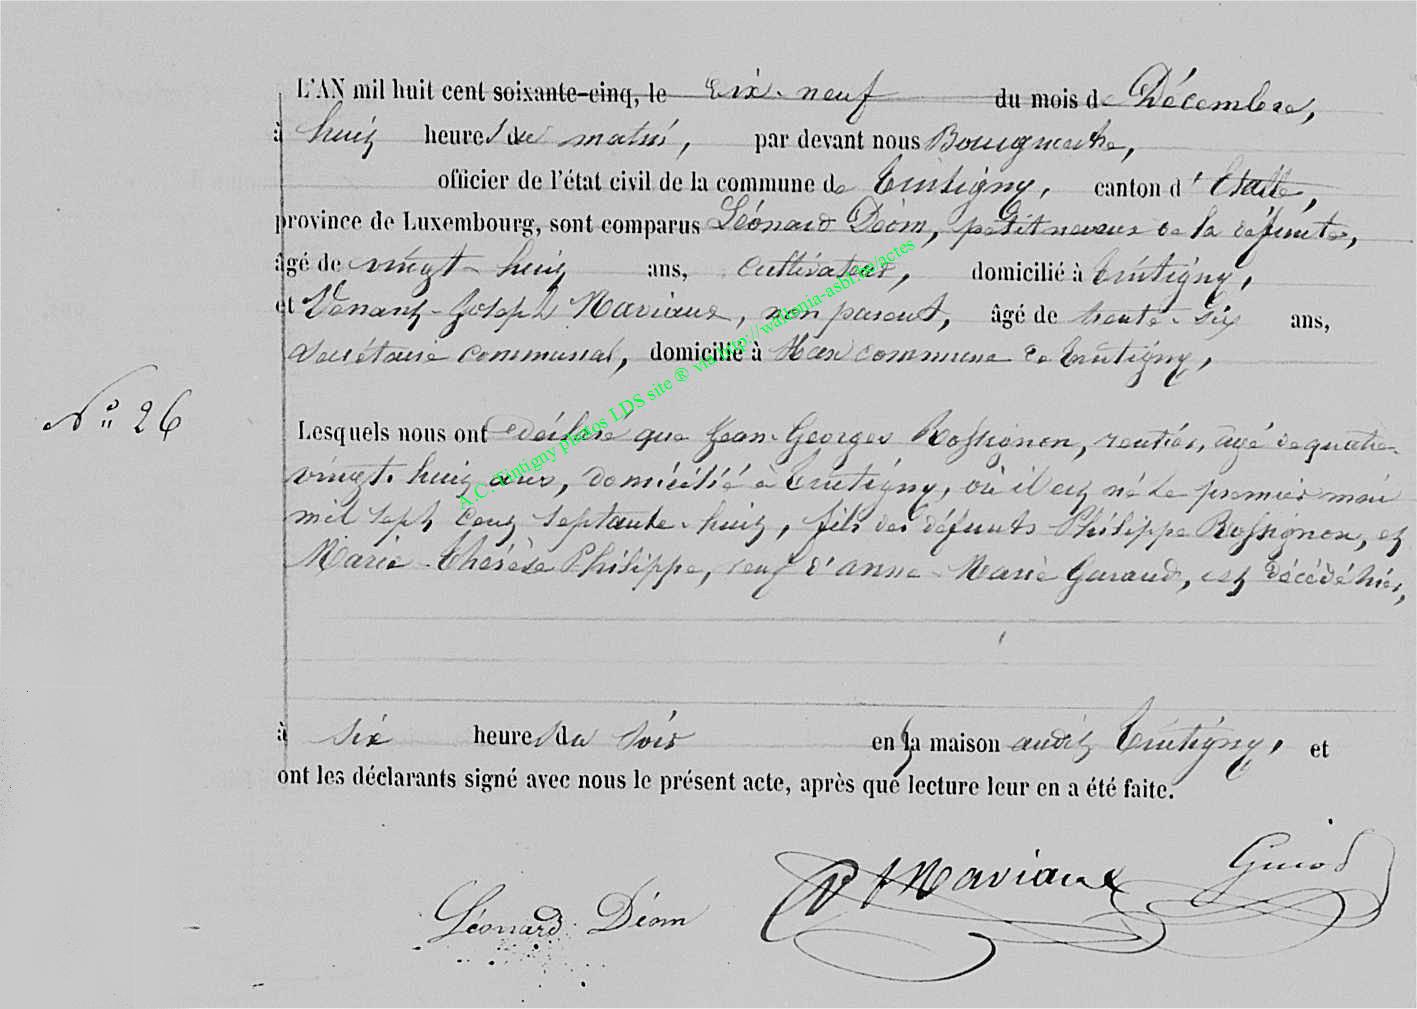 L'AN mil huit cent soixante-cinq, le dix-neuf du mois de Décembre,
à huit heures du matin, par devant nous
officier de l'état civil de la commune de Tintigny, canton d'Etalle,
province de Luxembourg, sont comparus Léonard Déom, petit neveux de la défunte,
âgé de vingt-huit ans, cultivateur, domicilié à Tintigny,
et Venant-Joseph Maviaux, non parent, âgé de trente-six ans,
secrétaire communal, domicilié à Han commune de Tintigny,
N° 26
Lesquels nous ont déclaré que Jean-Georges Rossignon, rentier, âgé de quatre-
vingt-huit ans, domicilié à Tintigny, où il est né le premier mai
mil sept cent septante-huit, fils des défunts Philippe Rossignon, et
Marie-Thérèse Philippe, veuf d'anne-Marie Guraud, est décédé hier,
à six heures du soir en la maison audit Tintigny, et
ont les déclarants signé avec nous le présent acte, après que lecture leur en a été faite.
Léonard Déom VJMaviaux
A.C. Tintigny photos LDS site ® via http://wallonia-asbl.be/actes